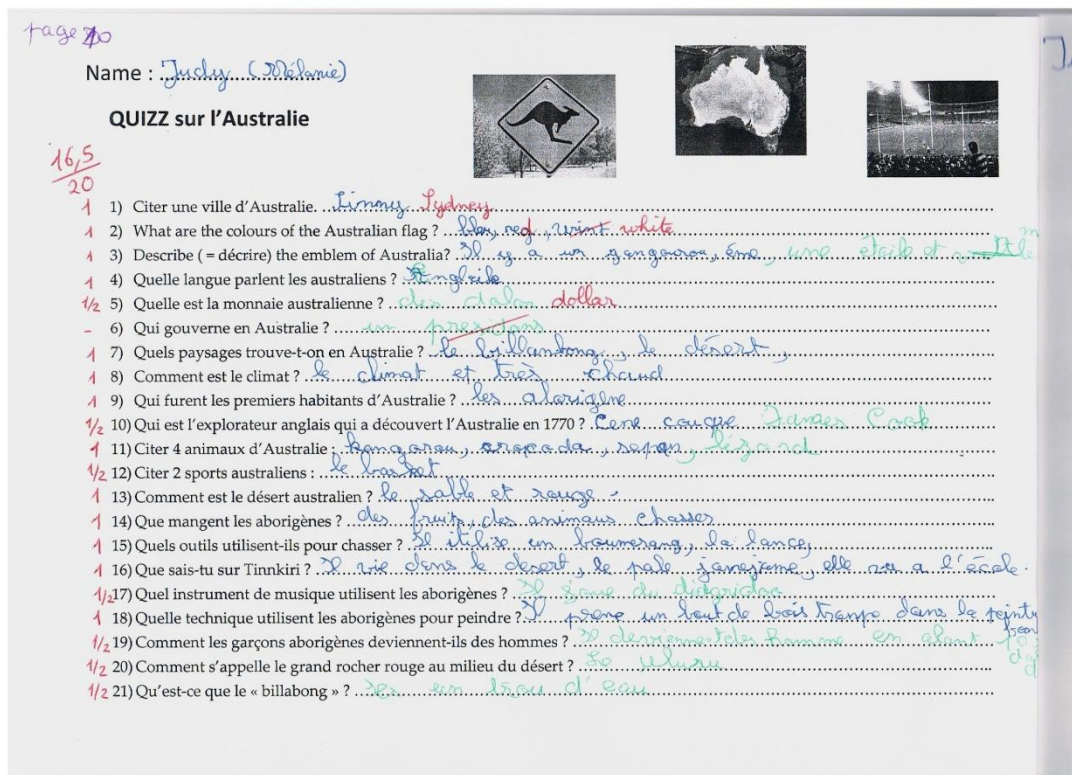 page 10
Name : Judy (Mélanie)
QUIZZ sur l'Australie
16,5
20
1 1) Citer une ville d'Australie. Sydney
1 2) What are the colours of the Australian flag ? blu, red, white
1 3) Describe ( = décrire) the emblem of Australia? Il y a un gangourou, éme, une étoile et
1 4) Quelle langue parlent les australiens ?
1/2 5) Quelle est la monnaie australienne ? des dolan dollar
- 6) Qui gouverne en Australie ? un presidans
1 7) Quels paysages trouve-t-on en Australie ? le billanbong, le désert,
1 8) Comment est le climat ? le climat et très chaud
1 9) Qui furent les premiers habitants d'Australie ? les aborigène
1/2 10) Qui est l'explorateur anglais qui a découvert l'Australie en 1770 ? James Cook
1 11) Citer 4 animaux d'Australie : kangorou, lézard
1/2 12) Citer 2 sports australiens : le basket
1 13) Comment est le désert australien ? le sable et rouge.
1 14) Que mangent les aborigènes ? des fruits, des animaus chasses
1 15) Quels outils utilisent-ils pour chasser ? Il itilise un boumerang, la lance,
1 16) Que sais-tu sur Tinnkiri ? Il vie dans le desert, elle va a l'école.
1/2 17) Quel instrument de musique utilisent les aborigènes ? Il joue du didgridoo
1 18) Quelle technique utilisent les aborigènes pour peindre ? Il prene un bout de bois tranpe dans la peinty
1/2 19) Comment les garçons aborigènes deviennent-ils des hommes ? Il deviennent des homme en alant
1/2 20) Comment s'appelle le grand rocher rouge au milieu du désert ? Le uluru
1/2 21) Qu'est-ce que le « billabong » ? un trou d'eau